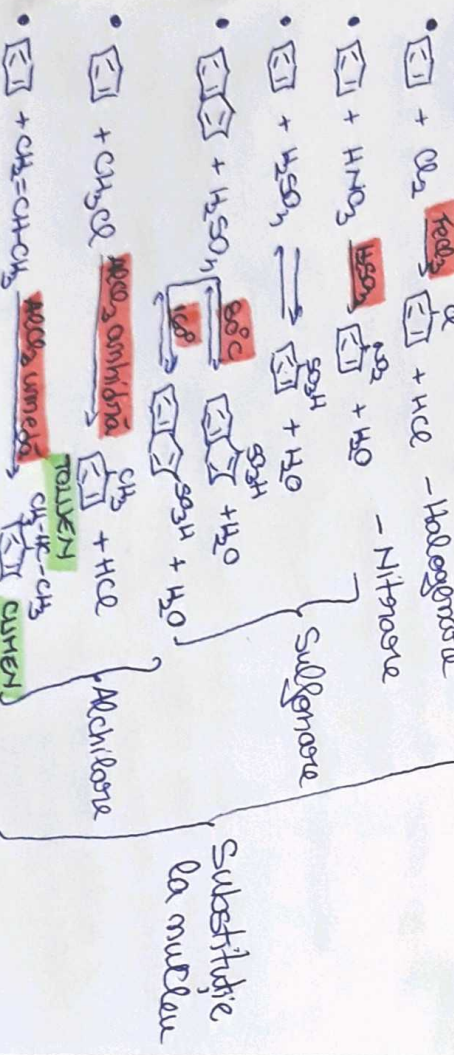 • + Cl₂ FeCl₃ → Cl + HCl - Halogenare
• + HNO₃ H₂SO₄ → NO₂ + H₂O - Nitrare
• + H₂SO₄ ⇌ SO₃H + H₂O
• + H₂SO₄ 80°C → SO₃H + H₂O
160° → SO₃H + H₂O
Sulfonare
• + CH₃Cl AlCl₃ anhidră → CH₃ + HCl
TOLUEN
• + CH₂=CH-CH₃ AlCl₃ umedă → CH₃-HC-CH₃
CUMEN
Alchilare
Substituție
la nucleu